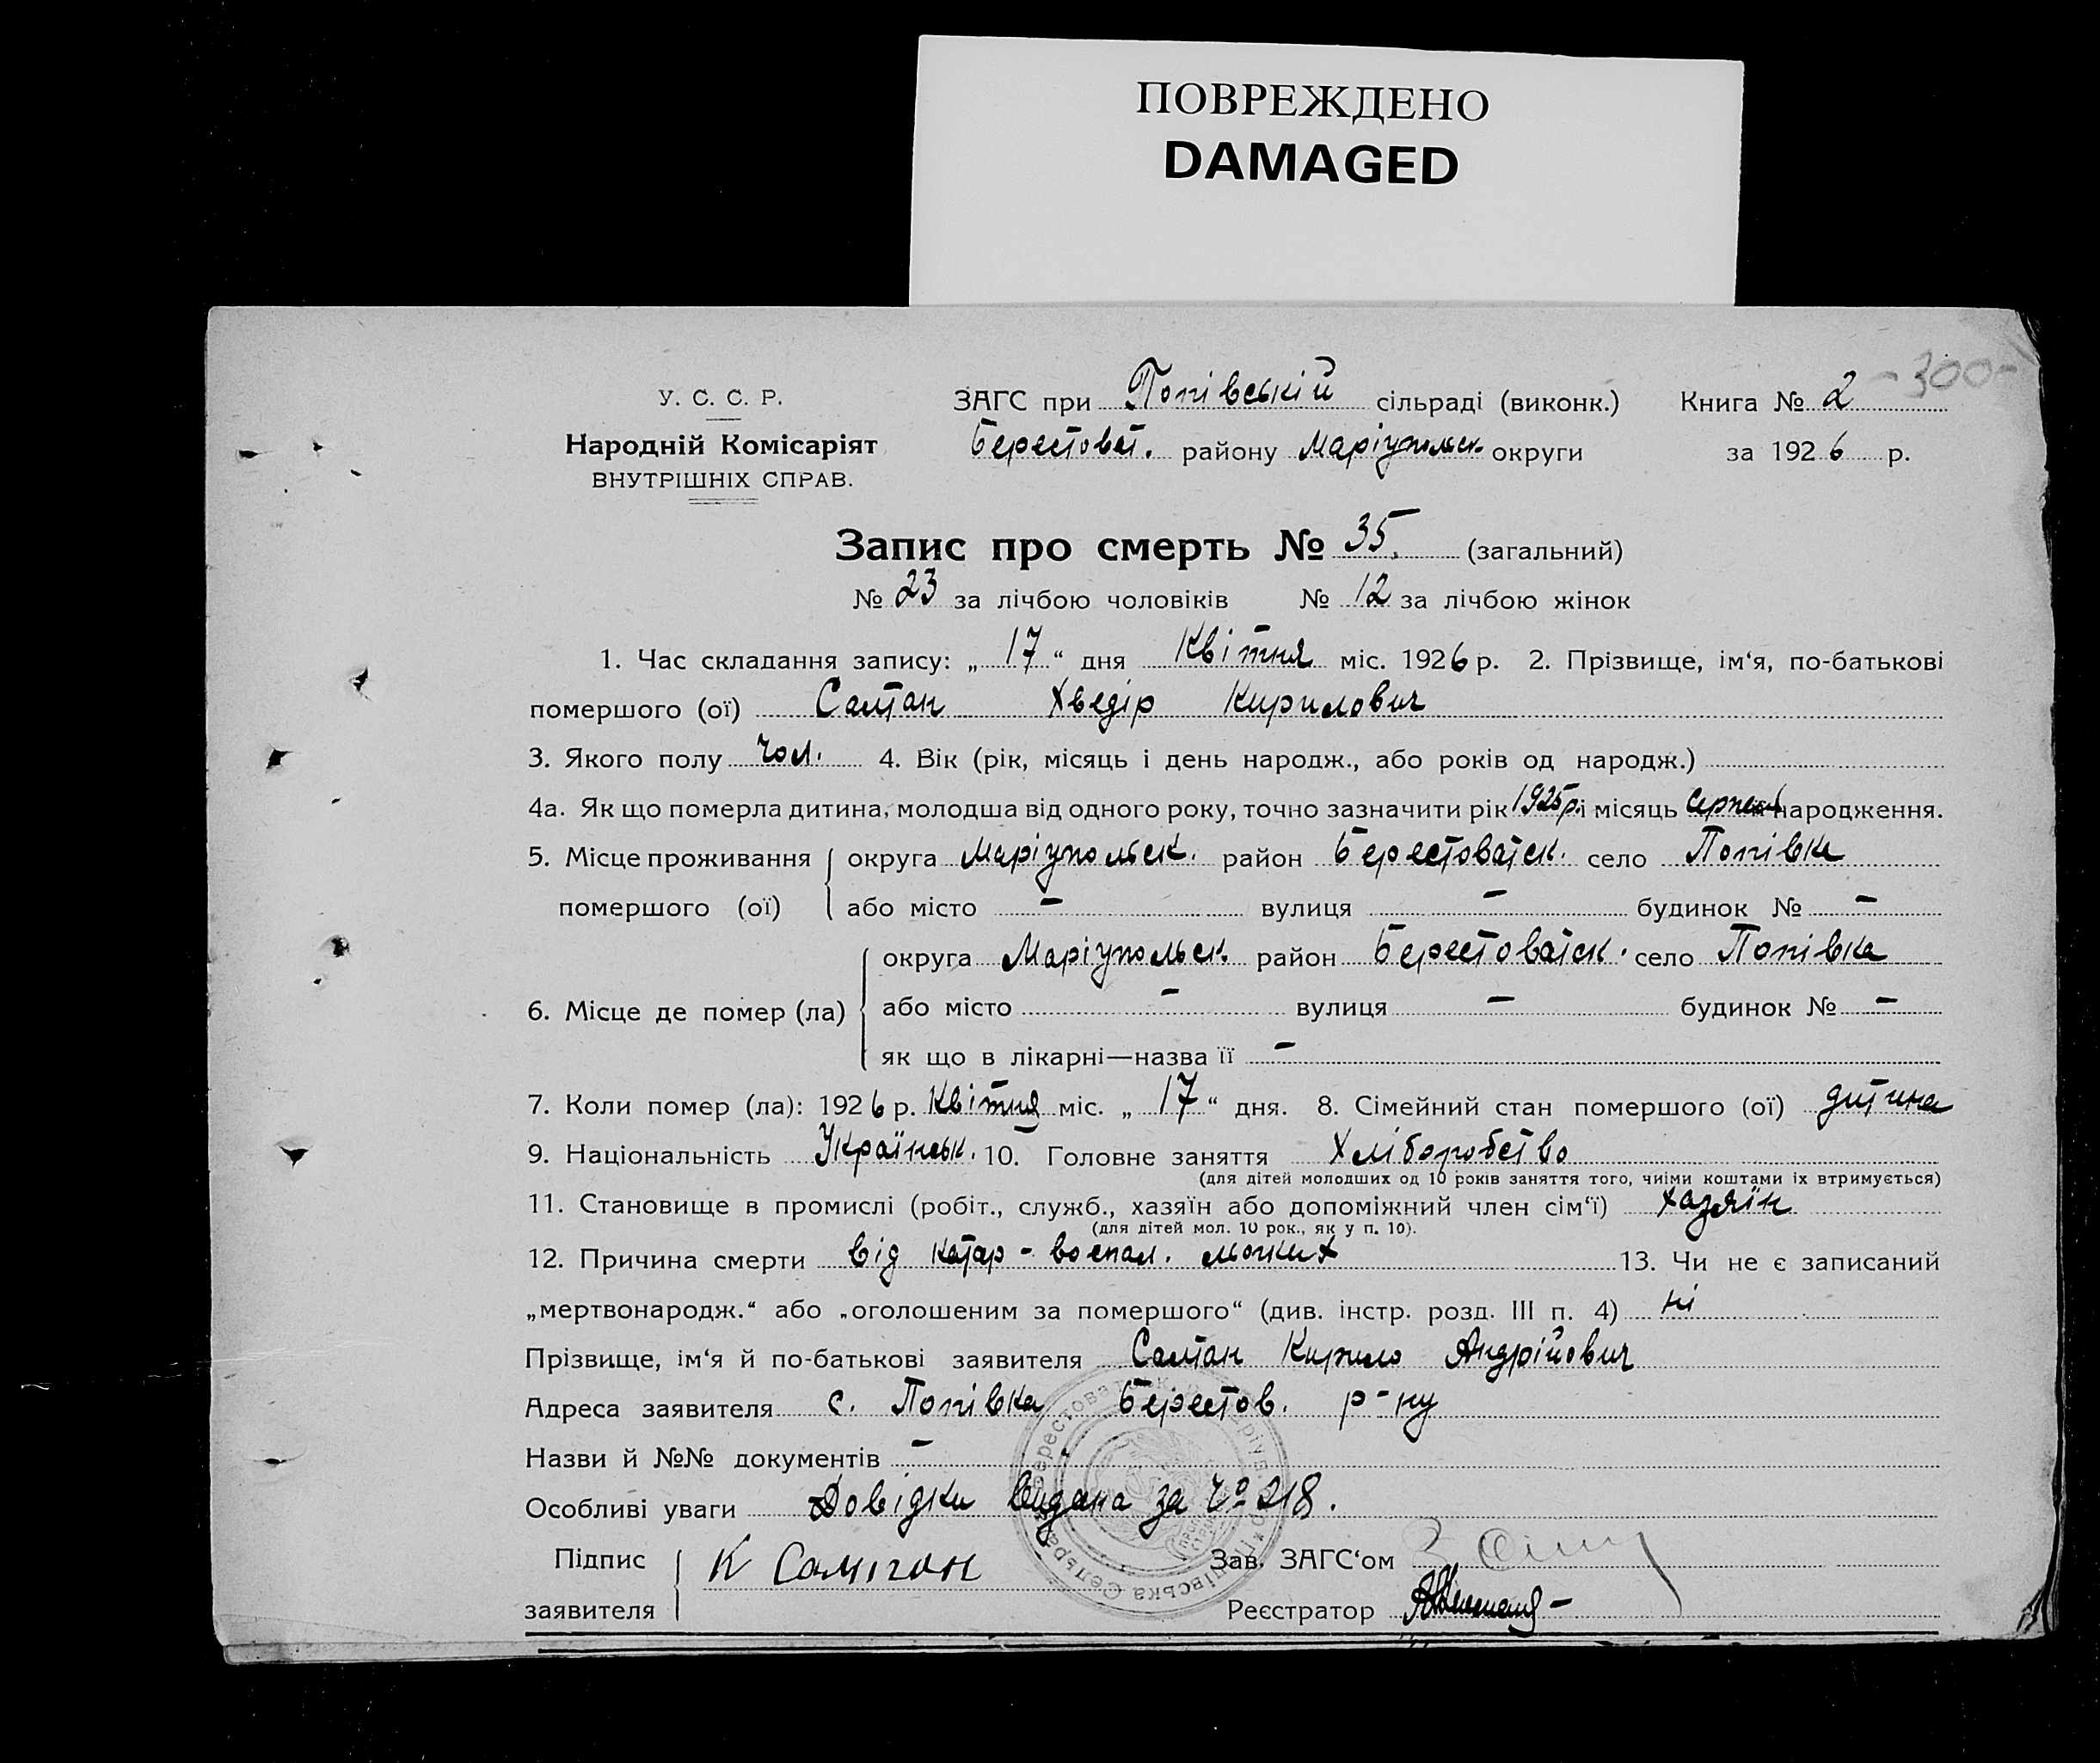 ПОВРЕЖДЕНО
DAMAGED
-300-
У. С. С. Р.
Народній Комісаріят
ВНУТРІШНІХ СПРАВ.
ЗАГС при Попівській сільраді (виконк.) Книга № 2
Берестоват. району Маріупольск. округи за 1926 р.
Запис про смерть № 35. (загальний)
№ 23 за лічбою чоловіків № 12 за лічбою жінок
1. Час складання запису: „17“ дня Квітня міс. 1926 р. 2. Прізвище, ім‘я, по-батькові
помершого (ої) Салтан Хведір Кирилович
3. Якого полу чол. 4. Вік (рік, місяць і день народж., або років од народж.)
4а. Як що померла дитина, молодша від одного року, точно зазначити рік 1925 р. і місяць народження.
5. Місце проживання округа Маріупольск. район Берестоватск. село Попівка
помершого (ої) або місто — вулиця — будинок № —
округа Маріупольск. район Берестоватск. село Попівка
6. Місце де помер (ла) або місто — вулиця — будинок № —
як що в лікарні—назва її —
7. Коли помер (ла): 1926 р. Квітня міс. „17“ дня. 8. Сімейний стан помершого (ої) дитина
9. Національність Українськ. 10. Головне заняття Хліборобство
(для дітей молодших од 10 років заняття того, чиїми коштами їх втримується)
11. Становище в промислі (робіт., служб., хазяїн або допоміжний член сім‘ї) хазяїн
(для дітей мол. 10 рок., як у п. 10).
12. Причина смерти від катар - воспал. льогких 13. Чи не є записаний
„мертвонародж.“ або „оголошеним за помершого“ (див. інстр. розд. III п. 4) ні
Прізвище, ім‘я й по-батькові заявителя Салтан Кирило Андрійович
Адреса заявителя с. Попівка Берестов. р-ну
Назви й №№ документів —
Особливі уваги Довідка видана за № 218.
Підпис К Салтан Зав. ЗАГС‘ом
заявителя Реєстратор